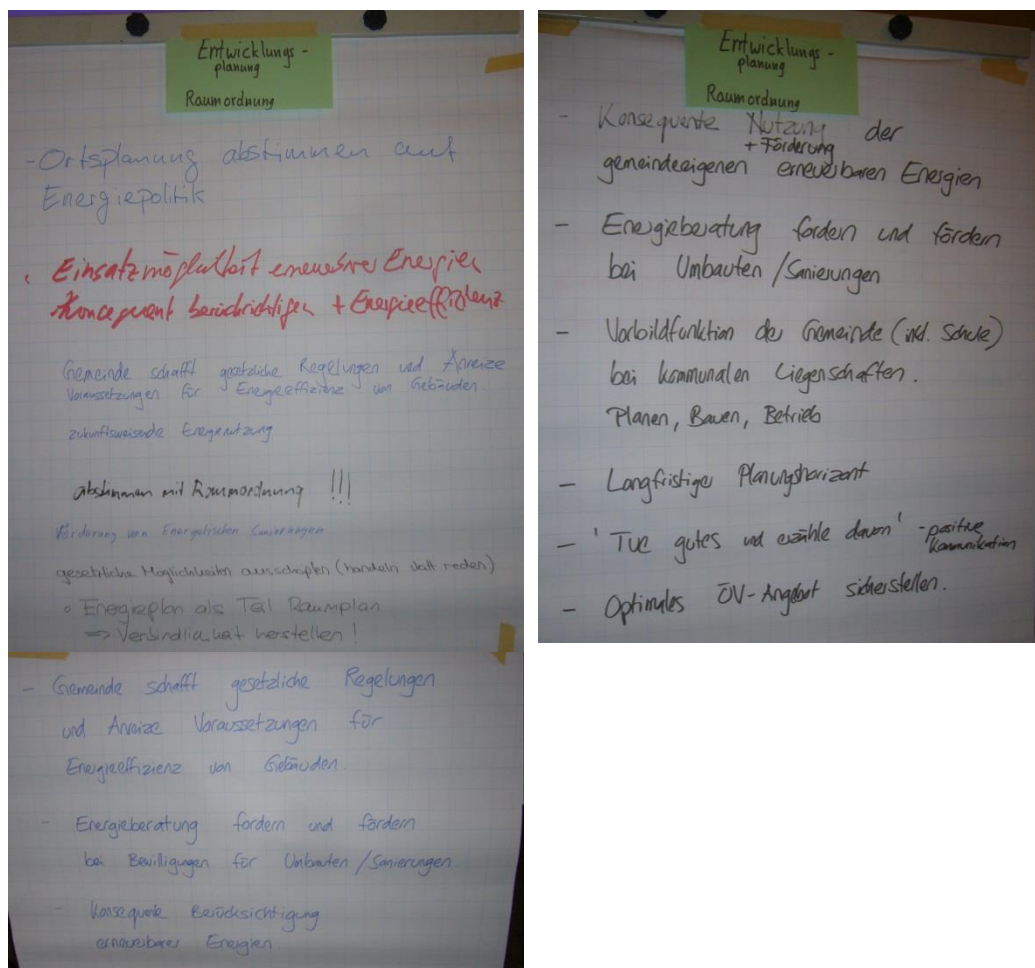 Entwicklungs-
planung
Raumordnung
- Ortsplanung abstimmen auf
Energiepolitik
Einsatzmöglichkeit erneuerbarer Energien
konsequent berücksichtigen + Energieeffizienz
Gemeinde schafft gesetzliche Regelungen und Anreize
Voraussetzungen für Energieeffizienz von Gebäuden
zukunftsweisende Energienutzung
abstimmen mit Raumordnung !!!
Förderung von Energetischen Sanierungen
gesetzliche Möglichkeiten ausschöpfen (handeln statt reden)
° Energieplan als Teil Raumplan
=> Verbindlichkeit herstellen !
- Gemeinde schafft gesetzliche Regelungen
und Anreize Voraussetzungen für
Energieeffizienz von Gebäuden
- Energieberatung fordern und fördern
bei Bewilligungen für Umbauten / Sanierungen
- Konsequente Berücksichtigung
erneuerbarer Energien
Entwicklungs-
planung
Raumordnung
- Konsequente Nutzung der
+ Förderung
gemeindeeigenen erneuerbaren Energien
- Energieberatung fordern und fördern
bei Umbauten / Sanierungen
- Vorbildfunktion der Gemeinde (inkl. Schule)
bei kommunalen Liegenschaften.
Planen, Bauen, Betrieb
- Langfristiger Planungshorizont
- 'Tue gutes und erzähle davon' - positive
Kommunikation
- Optimales ÖV-Angebot sicherstellen.